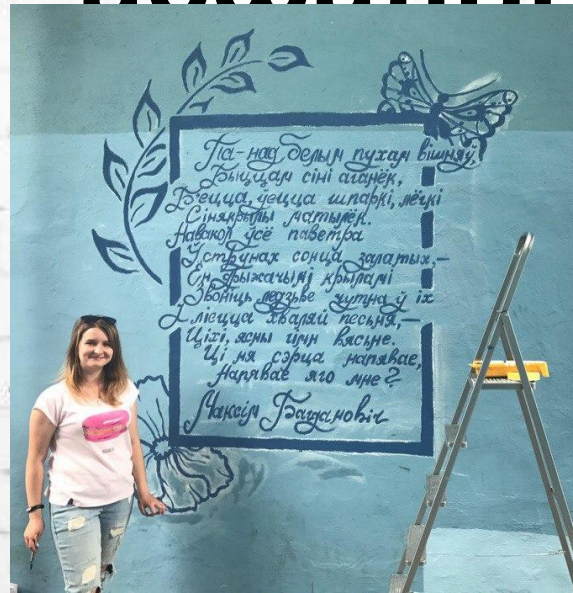 Па-над белым пухам вішняў,
Быццам сіні аганёк,
Б'ецца, ўецца шпаркі, лёгкі
Сінякрылы матылёк.
Навакол ўсё паветра
Ў струнах сонца залатых,—
Ён дрыжачымі крыламі
Звоніць ледзьве чутна ў іх
І ліецца хваляй песьня,—
Ціхі, ясны гімн вясьне.
Ці ня сэрца напявае,
Напявае яго мне?
Максім Багдановіч